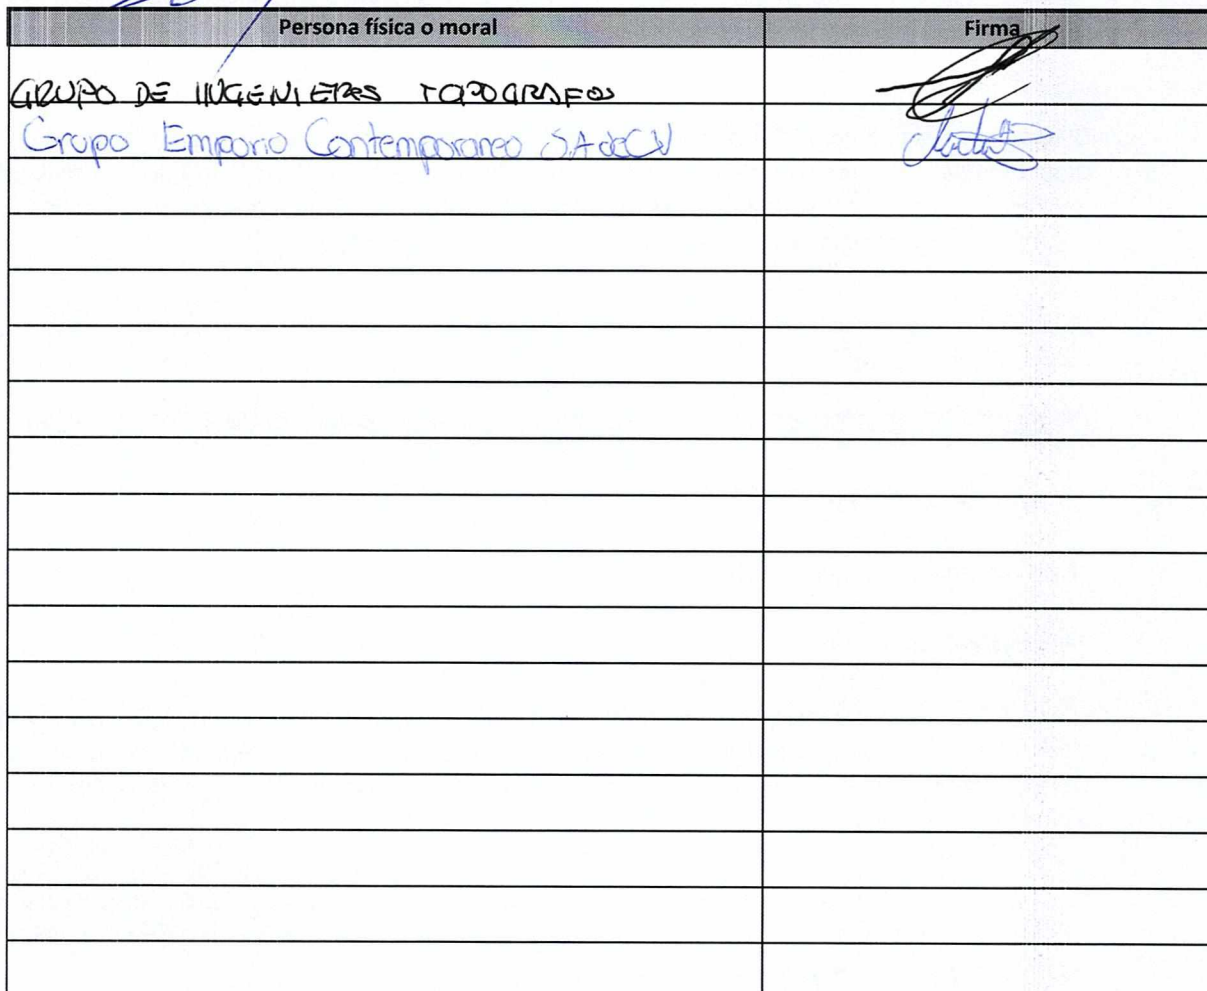 Persona física o moral Firma
GRUPO DE INGENIEROS TOPOGRAFOS
Grupo Emporio Contemporaneo S.A de C.V